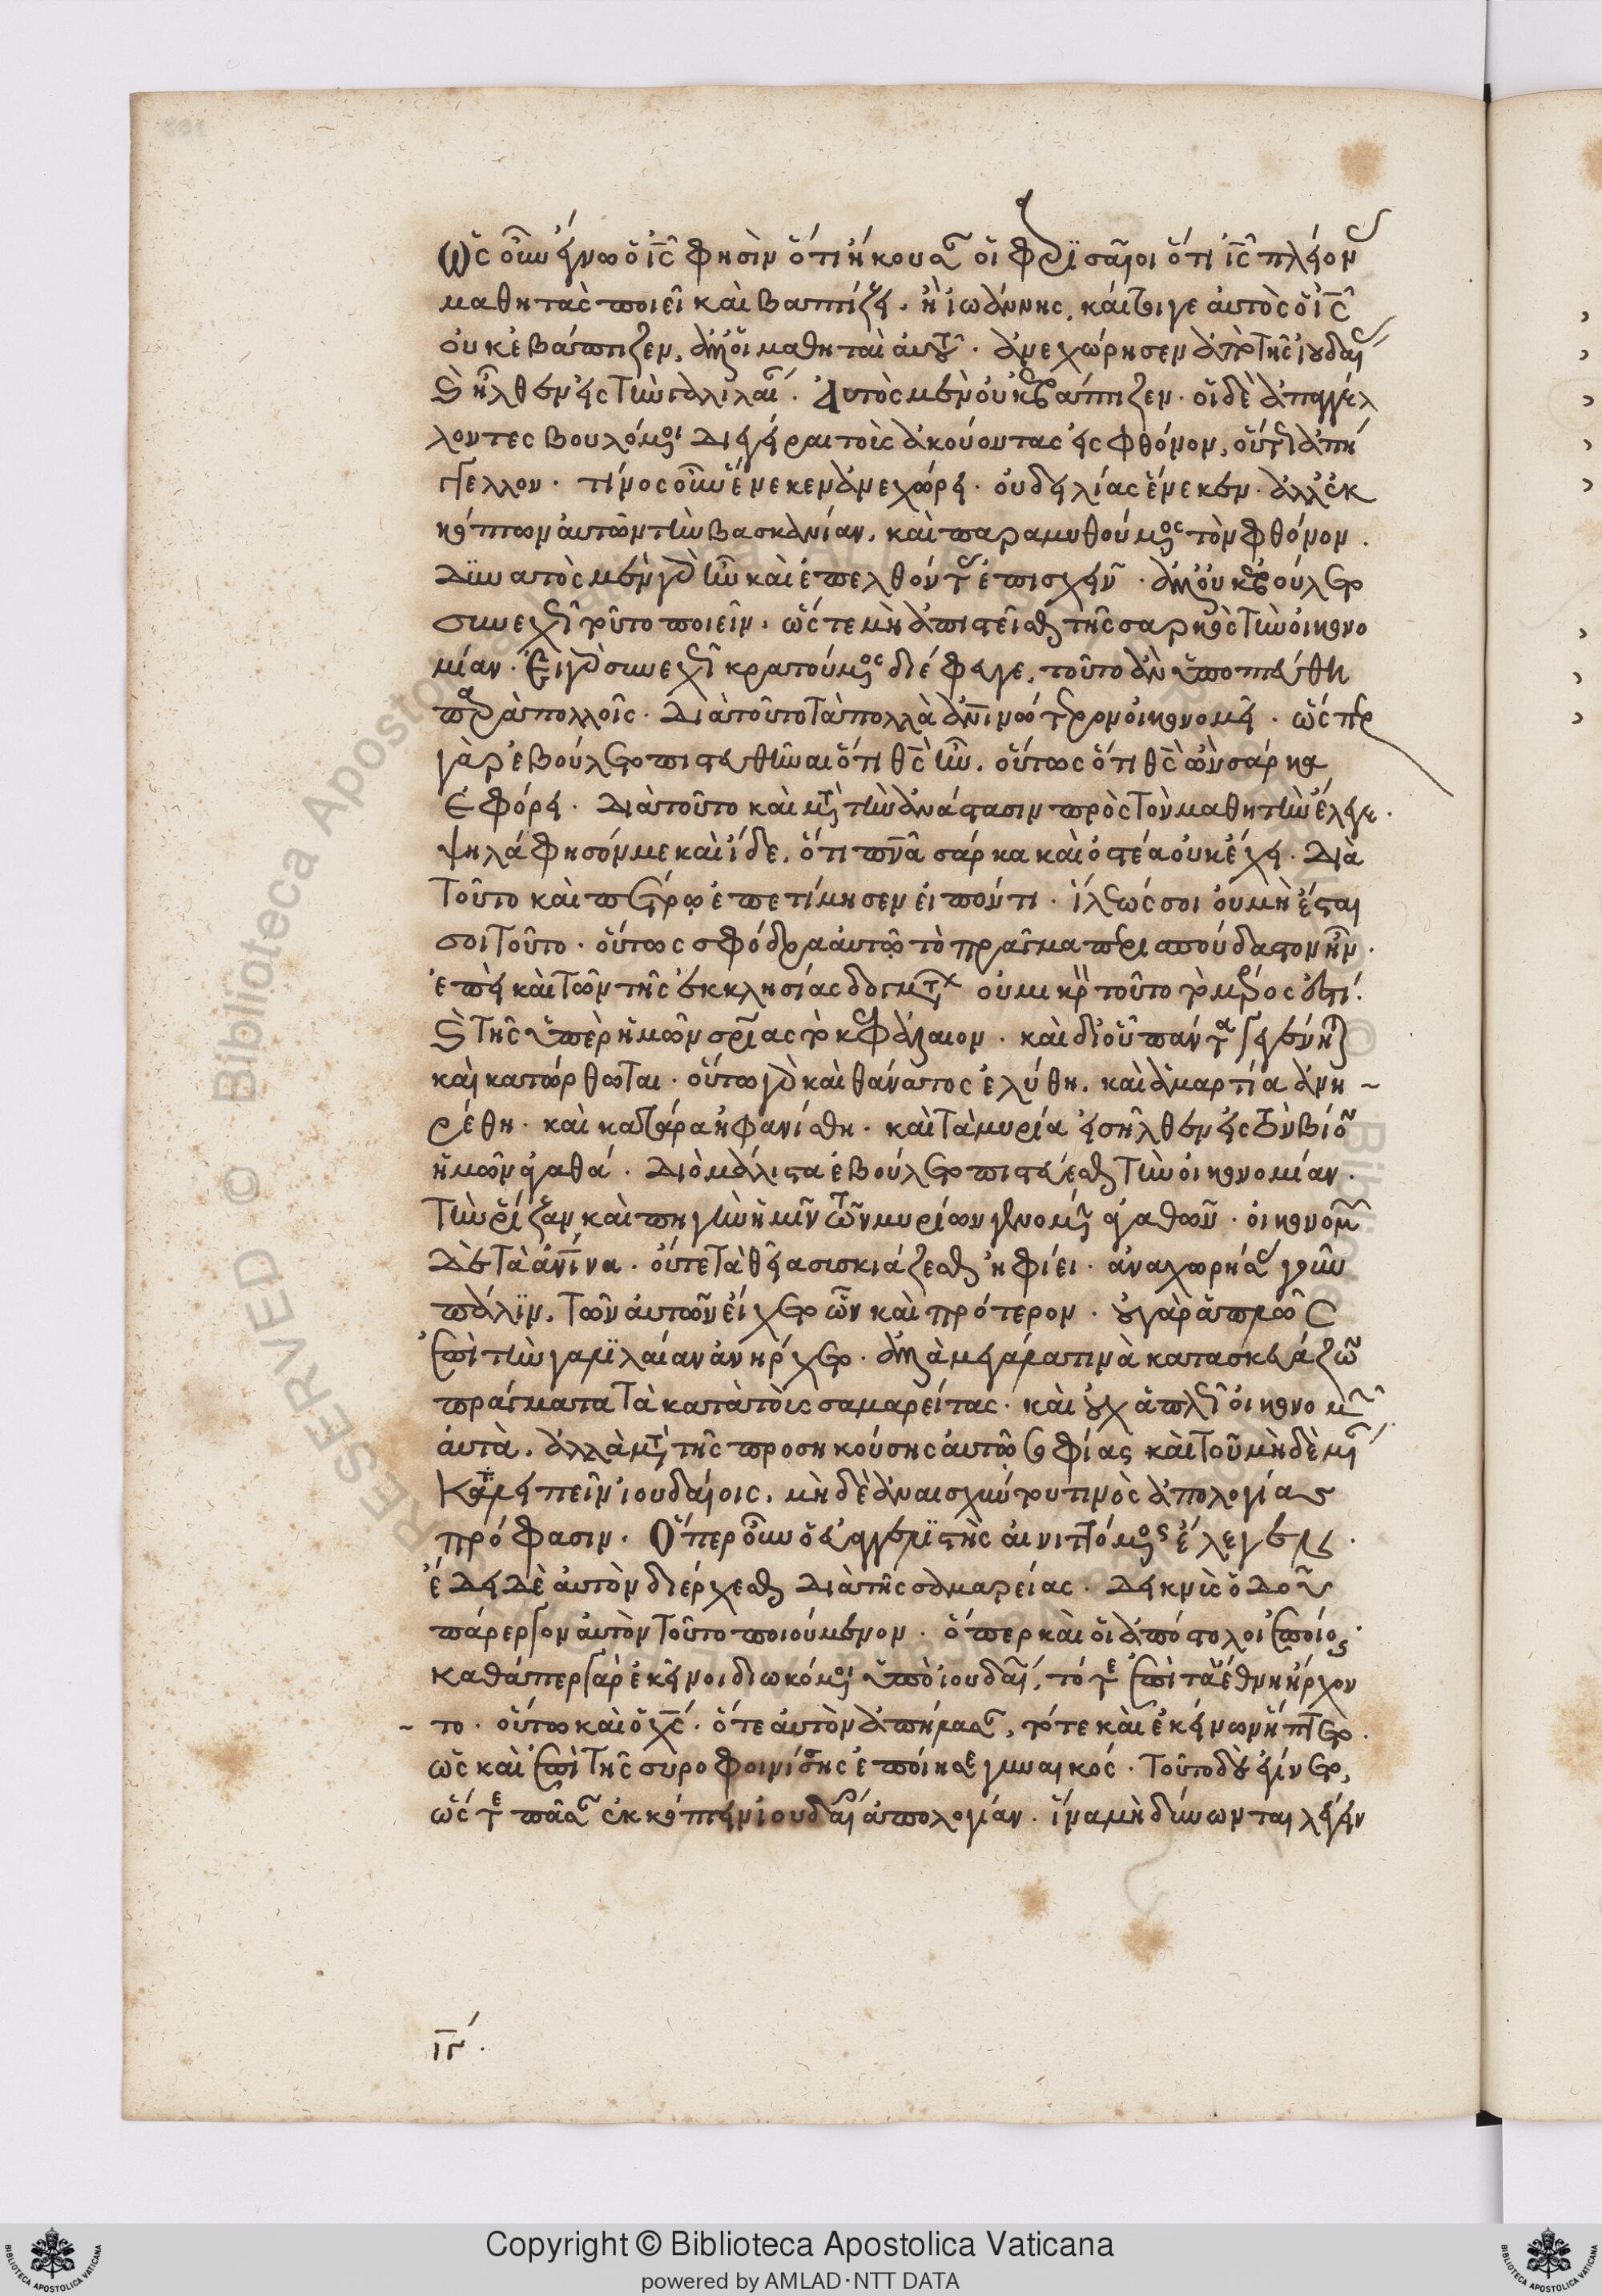 Ὡς οὖν ἔγνω ὁ ις φησὶν ὅτι ἤκουσαν οἱ φαρισαῖοι ὅτι ις πλείονας
μαθητὰς ποιεῖ καὶ βαπτίζει. ἢ ἰωάννης, καίτοιγε αὐτὸς ὁ ις
οὐκ ἐβάπτιζεν, ἀλλ' οἱ μαθηταὶ αὐτοῦ. ἀνεχώρησεν ἀπὸ τῆς ἰουδαίας
καὶ ἦλθεν εἰς τὴν γαλιλαίαν. Αὐτὸς μὲν οὐκ ἐβάπτιζεν. οἱ δὲ ἀπαγγέλ
λοντες βουλόμενοι διεγεῖραι τοὺς ἀκούοντας εἰς φθόνον, οὕτως ἀπή
γγελλον. τίνος οὖν ἕνεκεν ἀνεχώρει. οὐ δειλίας ἕνεκεν. ἀλλ' ἐκ
κόπτων αὐτῶν τὴν βασκανίαν, καὶ παραμυθούμενος τὸν φθόνον.
Δυνατὸς μὲν γὰρ ἦν καὶ ἐπελθόντας ἐπισχεῖν. ἀλλ' οὐκ ἐβούλετο
συνεχῶς τοῦτο ποιεῖν, ὥστε μὴ ἀπιστεῖσθαι τῆς σαρκὸς τὴν οἰκονο
μίαν. Εἰ γὰρ συνεχῶς κρατούμενος διέφυγε, τοῦτο ἂν ὑπωπτεύθη
παρὰ πολλοῖς. Διὰ τοῦτο τὰ πολλὰ ἀνθρωπινώτερον οἰκονομεῖ. ὥσπερ
γὰρ ἐβούλετο πιστευθῆναι ὅτι θς ἦν, οὕτως ὅτι θς ὢν σάρκα
ἐφόρει. Διὰ τοῦτο καὶ μετὰ τὴν ἀνάστασιν πρὸς τὸν μαθητὴν ἔλεγε.
ψηλάφησόν με καὶ ἴδε, ὅτι πνα σάρκα καὶ ὀστέα οὐκ ἔχει. Διὰ
τοῦτο καὶ πέτρῳ ἐπετίμησεν εἰπόντι. ἵλεώς σοι οὐ μὴ ἔσται
σοι τοῦτο. οὕτως σφόδρα αὐτῷ τὸ πρᾶγμα περισπούδαστον ἦν.
ἐπεὶ καὶ τῶν τῆς ἐκκλησίας δογμάτων οὐ μικρὸν τοῦτο τὸ μέρος ἐστί.
καὶ τῆς ὑπὲρ ἡμῶν σρίας τὸ κεφάλαιον. καὶ δι' οὗ πάντα γεγένηται
καὶ κατώρθωται. οὕτω γὰρ καὶ θάνατος ἐλύθη. καὶ ἁμαρτία ἀνῃ
ρέθη. καὶ κατάρα ἠφανίσθη. καὶ τὰ μυρία εἰσῆλθεν εἰς τὸν βίον
ἡμῶν ἀγαθά. Διὸ μάλιστα ἐβούλετο πιστεύεσθαι τὴν οἰκονομίαν.
τὴν ῥίζαν καὶ πηγὴν ἡμῖν τῶν μυρίων γενομένην ἀγαθῶν. οἰκονομῶν
δὲ τὰ ἀνινα. οὔτε τὰ θεῖα συσκιάζεσθαι ἠφίει. ἀναχωρήσας γοῦν
πάλιν, τῶν αὐτῶν εἴχετο ὧν καὶ πρότερον. οὐ γὰρ ἁπλῶς
ἐπὶ τὴν γαλιλαίαν ἀνήρχετο. ἀλλὰ μεγάλα τινὰ κατασκευάζων
πράγματα τὰ κατὰ τοὺς σαμαρείτας. καὶ οὐχ ἁπλῶς οἰκονομῶν
αὐτὰ, ἀλλὰ μετὰ τῆς προσηκούσης αὐτῷ σοφίας καὶ τοῦ μηδεμίαν
καταλιπεῖν ἰουδαίοις, μηδὲ ἀναισχύντου τινὸς ἀπολογίας
πρόφασιν. Ὅπερ οὖν ὁ εὐαγγελιστὴς αἰνιττόμενος ἔλεγεν.
ἔδει δὲ αὐτὸν διέρχεσθαι διὰ τῆς σαμαρείας. Δεικνὺς ὁδοῦ
πάρεργον αὐτὸν τοῦτο ποιούμενον. ὅπερ καὶ οἱ ἀπόστολοι ἐποίουν.
καθάπερ γὰρ ἐκεῖνοι διωκόμενοι ὑπὸ ἰουδαίων, τότε ἐπὶ τὰ ἔθνη ἤρχον
το. οὕτω καὶ ὁ χς. ὅτε αὐτὸν ἀπήλασαν, τότε καὶ ἐκείνων ἥπτετο.
ὡς καὶ ἐπὶ τῆς συροφοινίσσης ἐποίησε γυναικός. Τοῦτο δὲ ἐγίνετο,
ὥστε πᾶσαν ἐκκόπτειν ἰουδαίων ἀπολογίαν. ἵνα μὴ δύνωνται λέγειν
ιγ'.
Copyright © Biblioteca Apostolica Vaticana
powered by AMLAD·NTT DATA